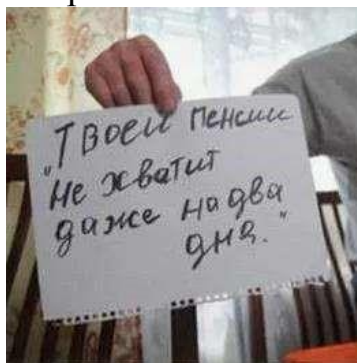 "Твоей пенсии
не хватит
даже на два
дня."